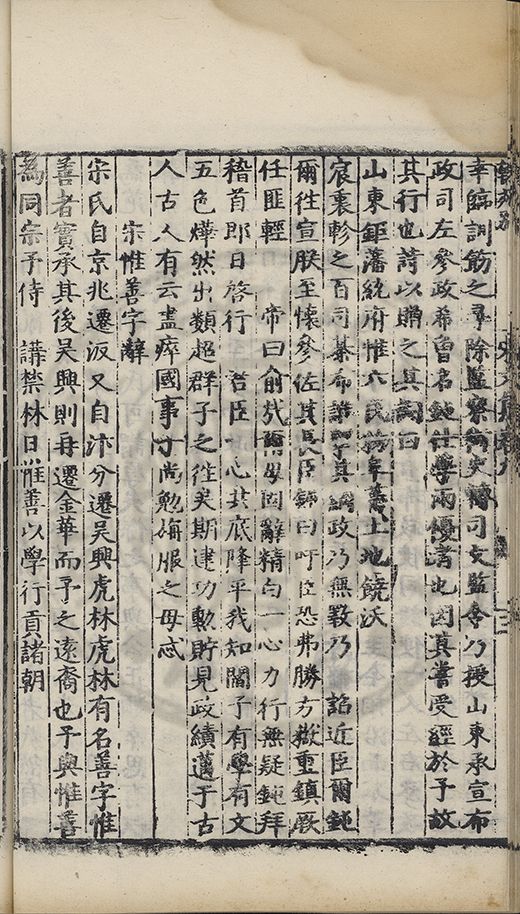 幸臨訓飭之尋除監察御史轉司文監令乃授山東承宣布
政司左參政希曾名鈍仕學兩優者也因其嘗受經於予故
其行也詩以贈之其詞曰
山東鉅藩統府惟六民物阜蕃土地饒沃
宸衷軫之百司綦布 其綱政乃無斁乃 詔近臣爾鈍
爾往宣朕至懷參佐其長臣鈍曰吁臣恐弗勝方嶽重鎮厥
任匪輕 帝曰俞哉 毋固辭精白一心力行無疑鈍拜
稽首即日啓行 君臣一心其底隆平我知關子有學有文
五色燁然出類超群子之往矣期建功勳貯見政績邁于古
人古人有云盡瘁國事 尚勉旃服之毋忒
宋惟善字辭
宋氏自京兆遷汳又自汴分遷吳興虎林虎林有名善字惟
善者實承其後吳興則再遷金華而予之遠裔也予與惟善
爲同宗予侍 講禁林日惟善以學行貢諸朝